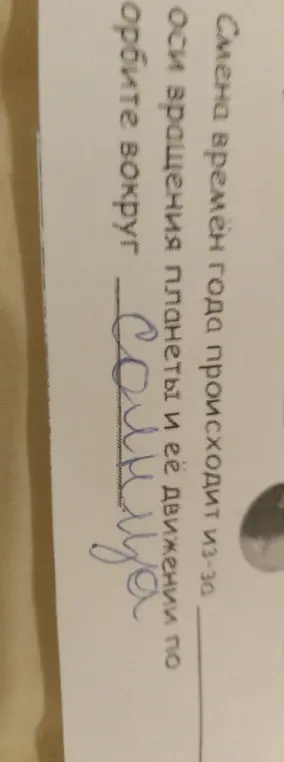 Смена времён года происходит из-за ______
оси вращения планеты и её движении по
орбите вокруг Солнца